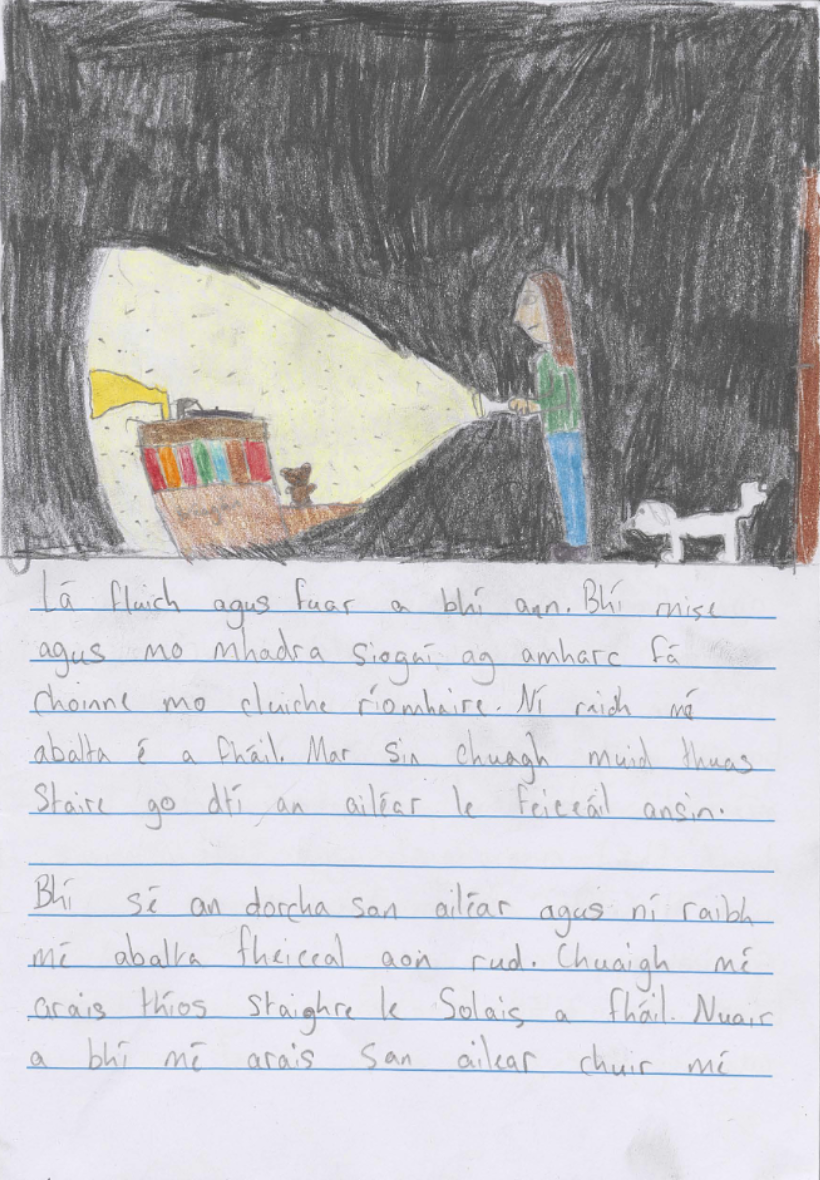 Lá fluich agus fuar a bhí ann. Bhí mise
agus mo mhadra Siogaí ag amharc fá
choinne mo cluiche ríomhaire. Ní raibh mé
abalta é a fháil. Mar sin chuagh muid thuas
Staire go dtí an ailéar le feiceáil ansin.
Bhí sé an dorcha san ailéar agus ní raibh
mé abalta fheiceal aon rud. Chuaigh mé
arais thíos staighre le Solais a fháil. Nuair
a bhí mé arais san ailear chuir mé